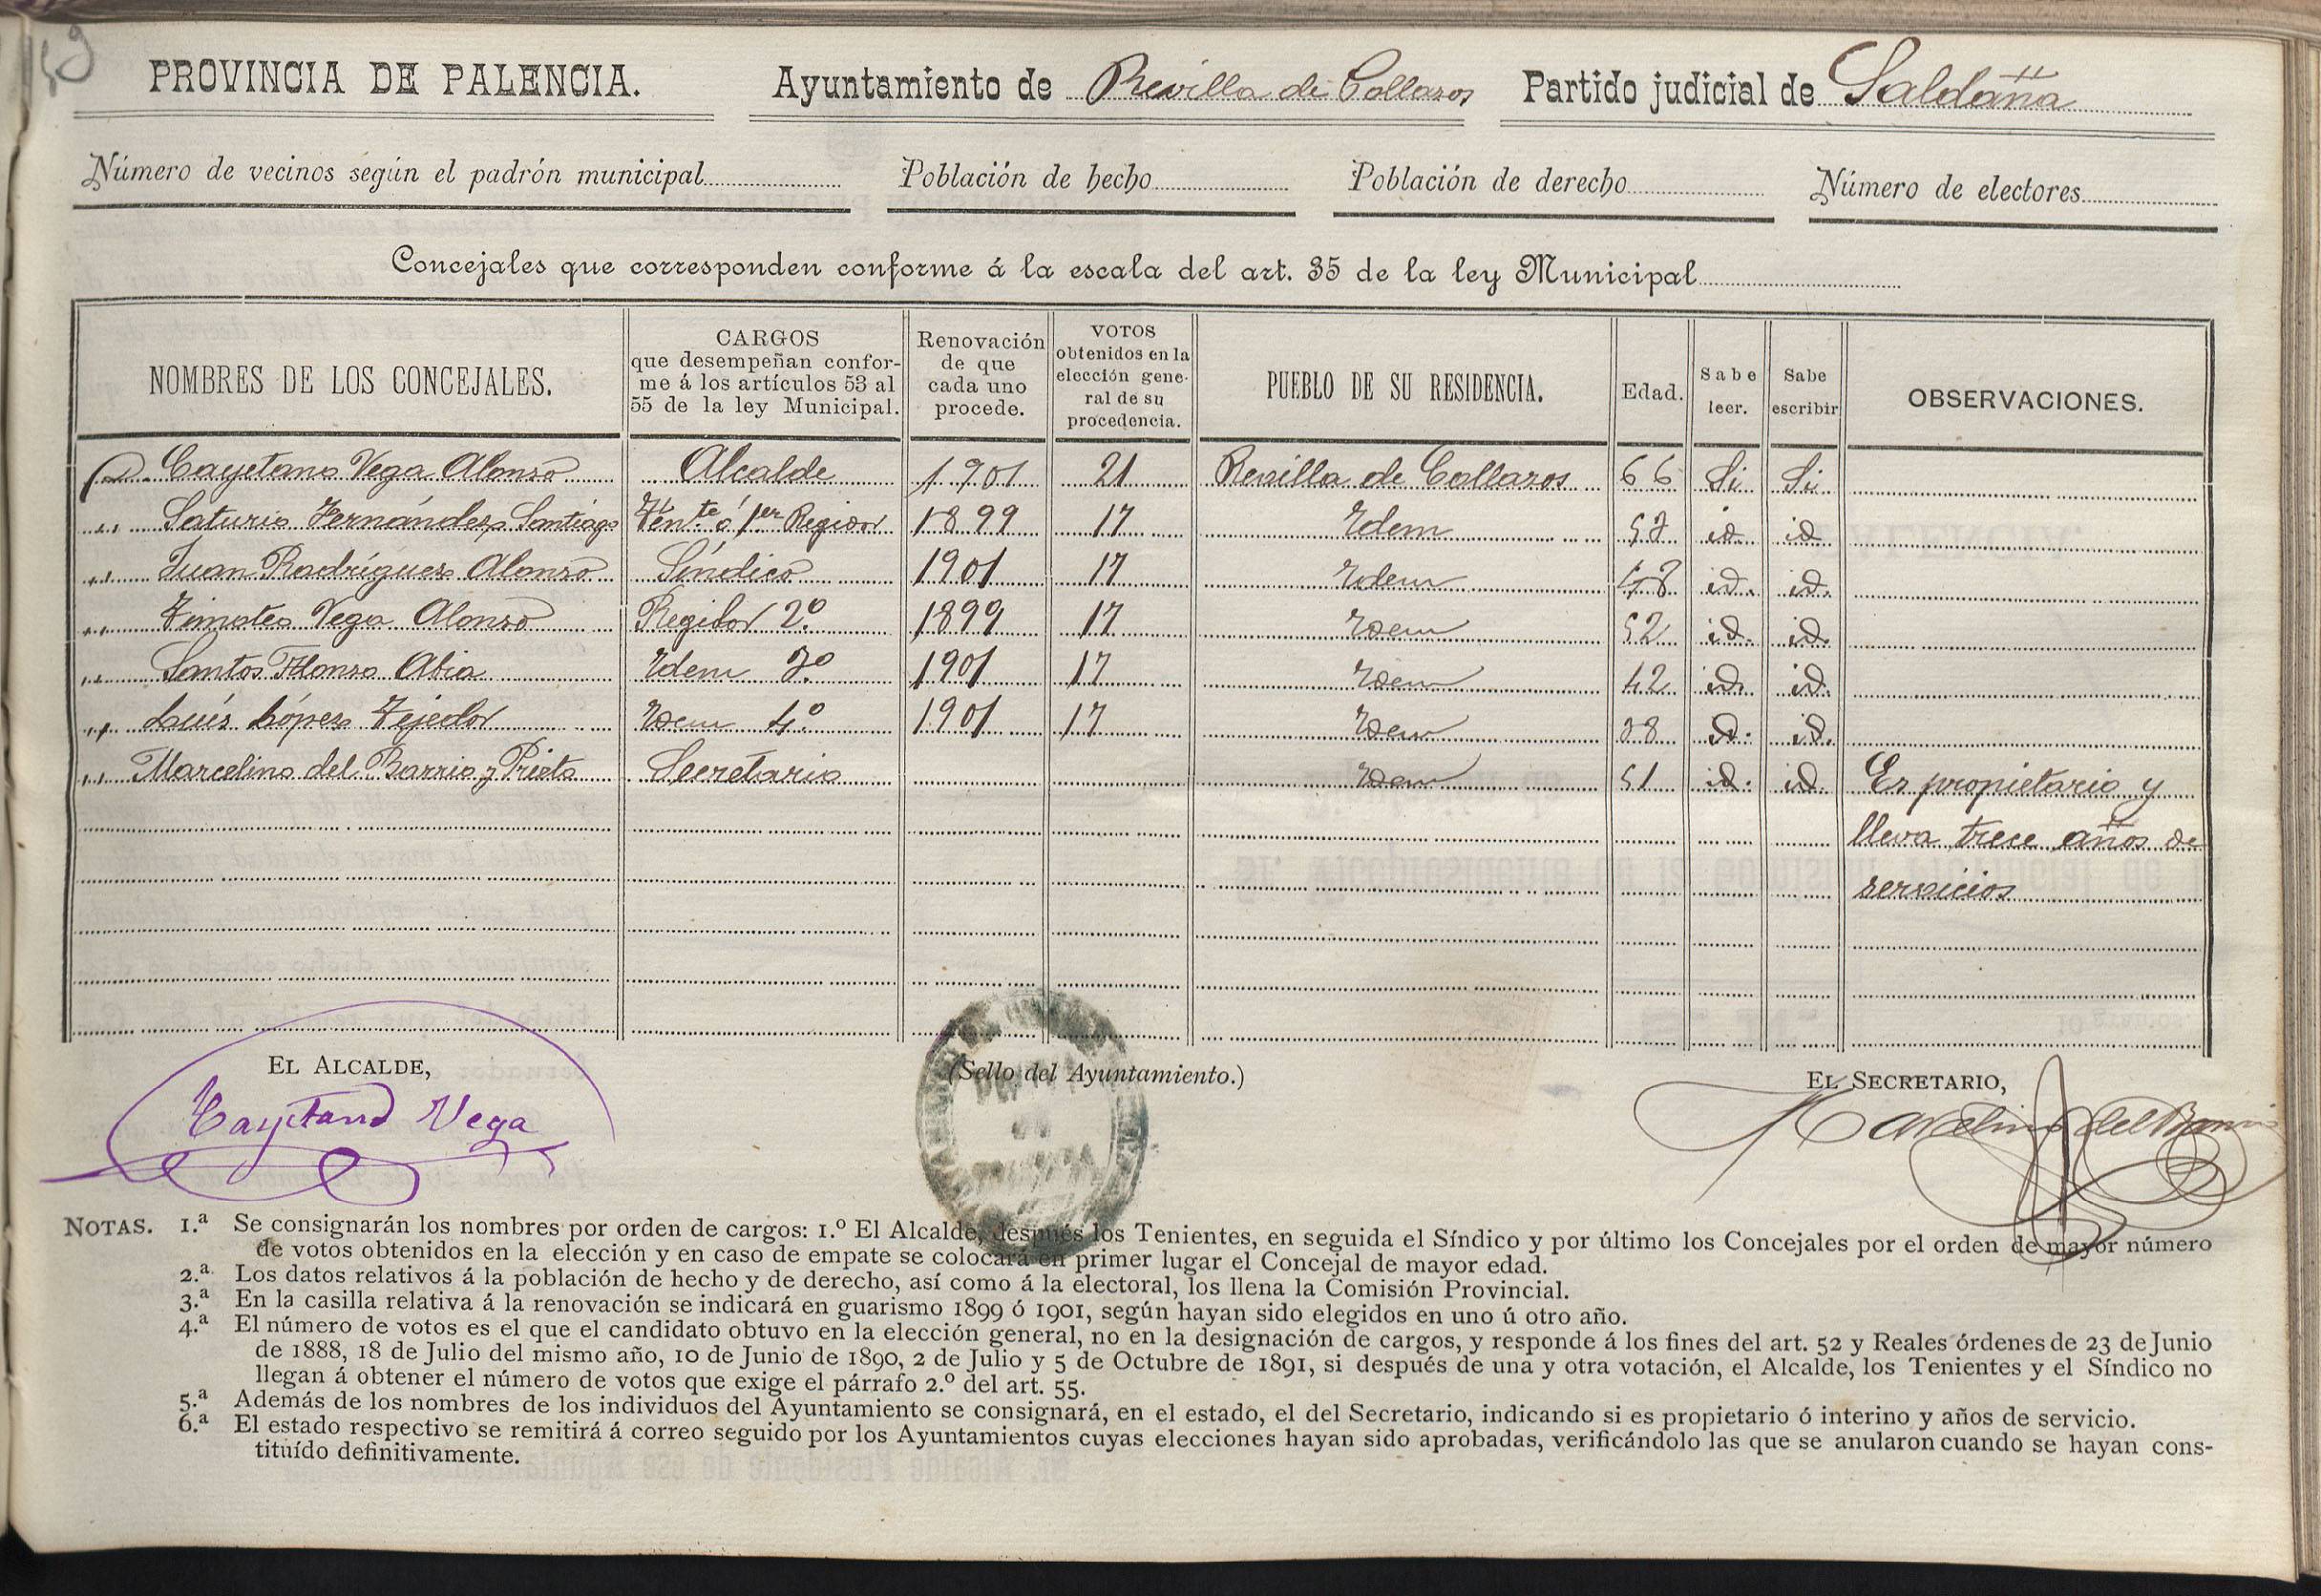 PROVINCIA DE PALENCIA. Ayuntamiento de Revilla de Collazos Partido judicial de Saldaña
Número de vecinos según el padrón municipal Población de hecho Población de derecho Número de electores
Concejales que corresponden conforme á la escala del art. 35 de la ley Municipal
NOMBRES DE LOS CONCEJALES. CARGOS que desempeñan confor- Renovación VOTOS PUEBLO DE SU RESIDENCIA. Edad. Sabe Sabe OBSERVACIONES.
me á los artículos 53 al de que obtenidos en la leer. escribir
55 de la ley Municipal. cada uno elección gene-
procede. ral de su
procedencia.
D. Cayetano Vega Alonso Alcalde 1901 21 Revilla de Collazos 66 Si Si
" Saturio Fernández Santiago Tente ó 1er Regidor 1899 17 Idem id id
" Juan Rodríguez Alonso Síndico 1901 17 Idem 48 id. id.
" Timoteo Vega Alonso Regidor 2º 1899 17 Idem 52 id. id.
" Santos Alonso Abia Idem 3º 1901 17 Idem 42 id. id.
" Luís López Tejedor Idem 4º 1901 17 Idem 38 id. id.
" Marcelino del Barrio y Prieto Secretario Idem 51 id. id. Es propietario y
lleva trece años de
servicios
EL ALCALDE, (Sello del Ayuntamiento.) EL SECRETARIO,
Cayetano Vega Marcelino del Barrio
NOTAS. 1.ª Se consignarán los nombres por orden de cargos: 1.º El Alcalde, después los Tenientes, en seguida el Síndico y por último los Concejales por el orden de mayor número
de votos obtenidos en la elección y en caso de empate se colocará en primer lugar el Concejal de mayor edad.
2.ª Los datos relativos á la población de hecho y de derecho, así como á la electoral, los llena la Comisión Provincial.
3.ª En la casilla relativa á la renovación se indicará en guarismo 1899 ó 1901, según hayan sido elegidos en uno ú otro año.
4.ª El número de votos es el que el candidato obtuvo en la elección general, no en la designación de cargos, y responde á los fines del art. 52 y Reales órdenes de 23 de Junio
de 1888, 18 de Julio del mismo año, 10 de Junio de 1890, 2 de Julio y 5 de Octubre de 1891, si después de una y otra votación, el Alcalde, los Tenientes y el Síndico no
llegan á obtener el número de votos que exige el párrafo 2.º del art. 55.
5.ª Además de los nombres de los individuos del Ayuntamiento se consignará, en el estado, el del Secretario, indicando si es propietario ó interino y años de servicio.
6.ª El estado respectivo se remitirá á correo seguido por los Ayuntamientos cuyas elecciones hayan sido aprobadas, verificándolo las que se anularon cuando se hayan cons-
tituído definitivamente.